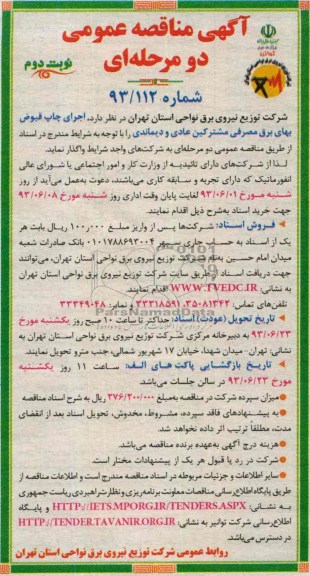 آگهی مناقصه عمومی
دو مرحله‌ای
نوبت دوم
شماره ۹۳/۱۱۲
شرکت توزیع نیروی برق نواحی استان تهران در نظر دارد، اجرای چاپ قبوض
بهای برق مصرفی مشترکین عادی و دیماندی را با توجه به شرایط مندرج در اسناد
از طریق مناقصه عمومی دو مرحله‌ای به شرکت‌های واجد شرایط واگذار نماید.
لذا از شرکت‌های دارای تائیدیه از وزارت کار و امور اجتماعی یا شورای عالی
انفورماتیک که دارای تجربه و سابقه کاری می‌باشند، دعوت به‌عمل می‌آید از روز
شنبه مورخ ۹۳/۰۶/۰۱ لغایت پایان وقت اداری روز شنبه مورخ ۹۳/۰۶/۰۸
جهت خرید اسناد به‌شرح ذیل اقدام نمایند.
فروش اسناد: شرکت‌ها پس از واریز مبلغ ۱۰۰,۰۰۰ ریال بابت هر
یک از اسناد به حساب جاری سپهر ۰۱۰۱۷۸۸۶۹۳۰۰۴ بانک صادرات شعبه
میدان امام حسین به‌نام شرکت توزیع نیروی برق نواحی استان تهران، می‌توانند
جهت دریافت اسناد از طریق سایت شرکت توزیع نیروی برق نواحی استان تهران
به نشانی: WWW.TVEDC.IR اقدام نمایند.
تلفن‌های تماس: ۳۵۰۸۱۳۴۳، ۳۳۳۱۸۵۹۱ و نمابر: ۳۳۳۴۹۰۴۸
تاریخ تحویل (عودت) اسناد: حداکثر تا ساعت ۱۰ صبح روز یکشنبه مورخ
۹۳/۰۶/۲۳ به دبیرخانه مرکزی شرکت توزیع نیروی برق نواحی استان تهران به
نشانی: تهران- میدان شهدا، خیابان ۱۷ شهریور شمالی، جنب مترو تحویل نمایند.
تاریخ بازگشایی پاکت‌های الف: ساعت ۱۱ روز یکشنبه
مورخ ۹۳/۰۶/۲۳ در سالن جلسات می‌باشد.
میزان سپرده شرکت در مناقصه به‌مبلغ ۲۷۶/۲۰۰/۰۰۰ ریال به شرح اسناد مناقصه
به پیشنهادهای فاقد سپرده، مشروط، مخدوش، تحویل اسناد بعد از انقضای
مدت، مطلقاً ترتیب اثر داده نخواهد شد.
هزینه درج آگهی به‌عهده برنده مناقصه می‌باشد.
شرکت در رد یا قبول هر یک از پیشنهادات مختار است.
سایر اطلاعات و جزئیات مربوطه در اسناد مناقصه مندرج است و اطلاعات مناقصه از
طریق پایگاه اطلاع‌رسانی مناقصات معاونت برنامه‌ریزی و نظارت راهبردی ریاست جمهوری
به نشانی: HTTP://IETS.MPORG.IR/TENDERS.ASPX و پایگاه
اطلاع‌رسانی شرکت توانیر به نشانی: HTTP://TENDER.TAVANIR.ORG.IR
در دسترس می‌باشد.
روابط عمومی شرکت توزیع نیروی برق نواحی استان تهران